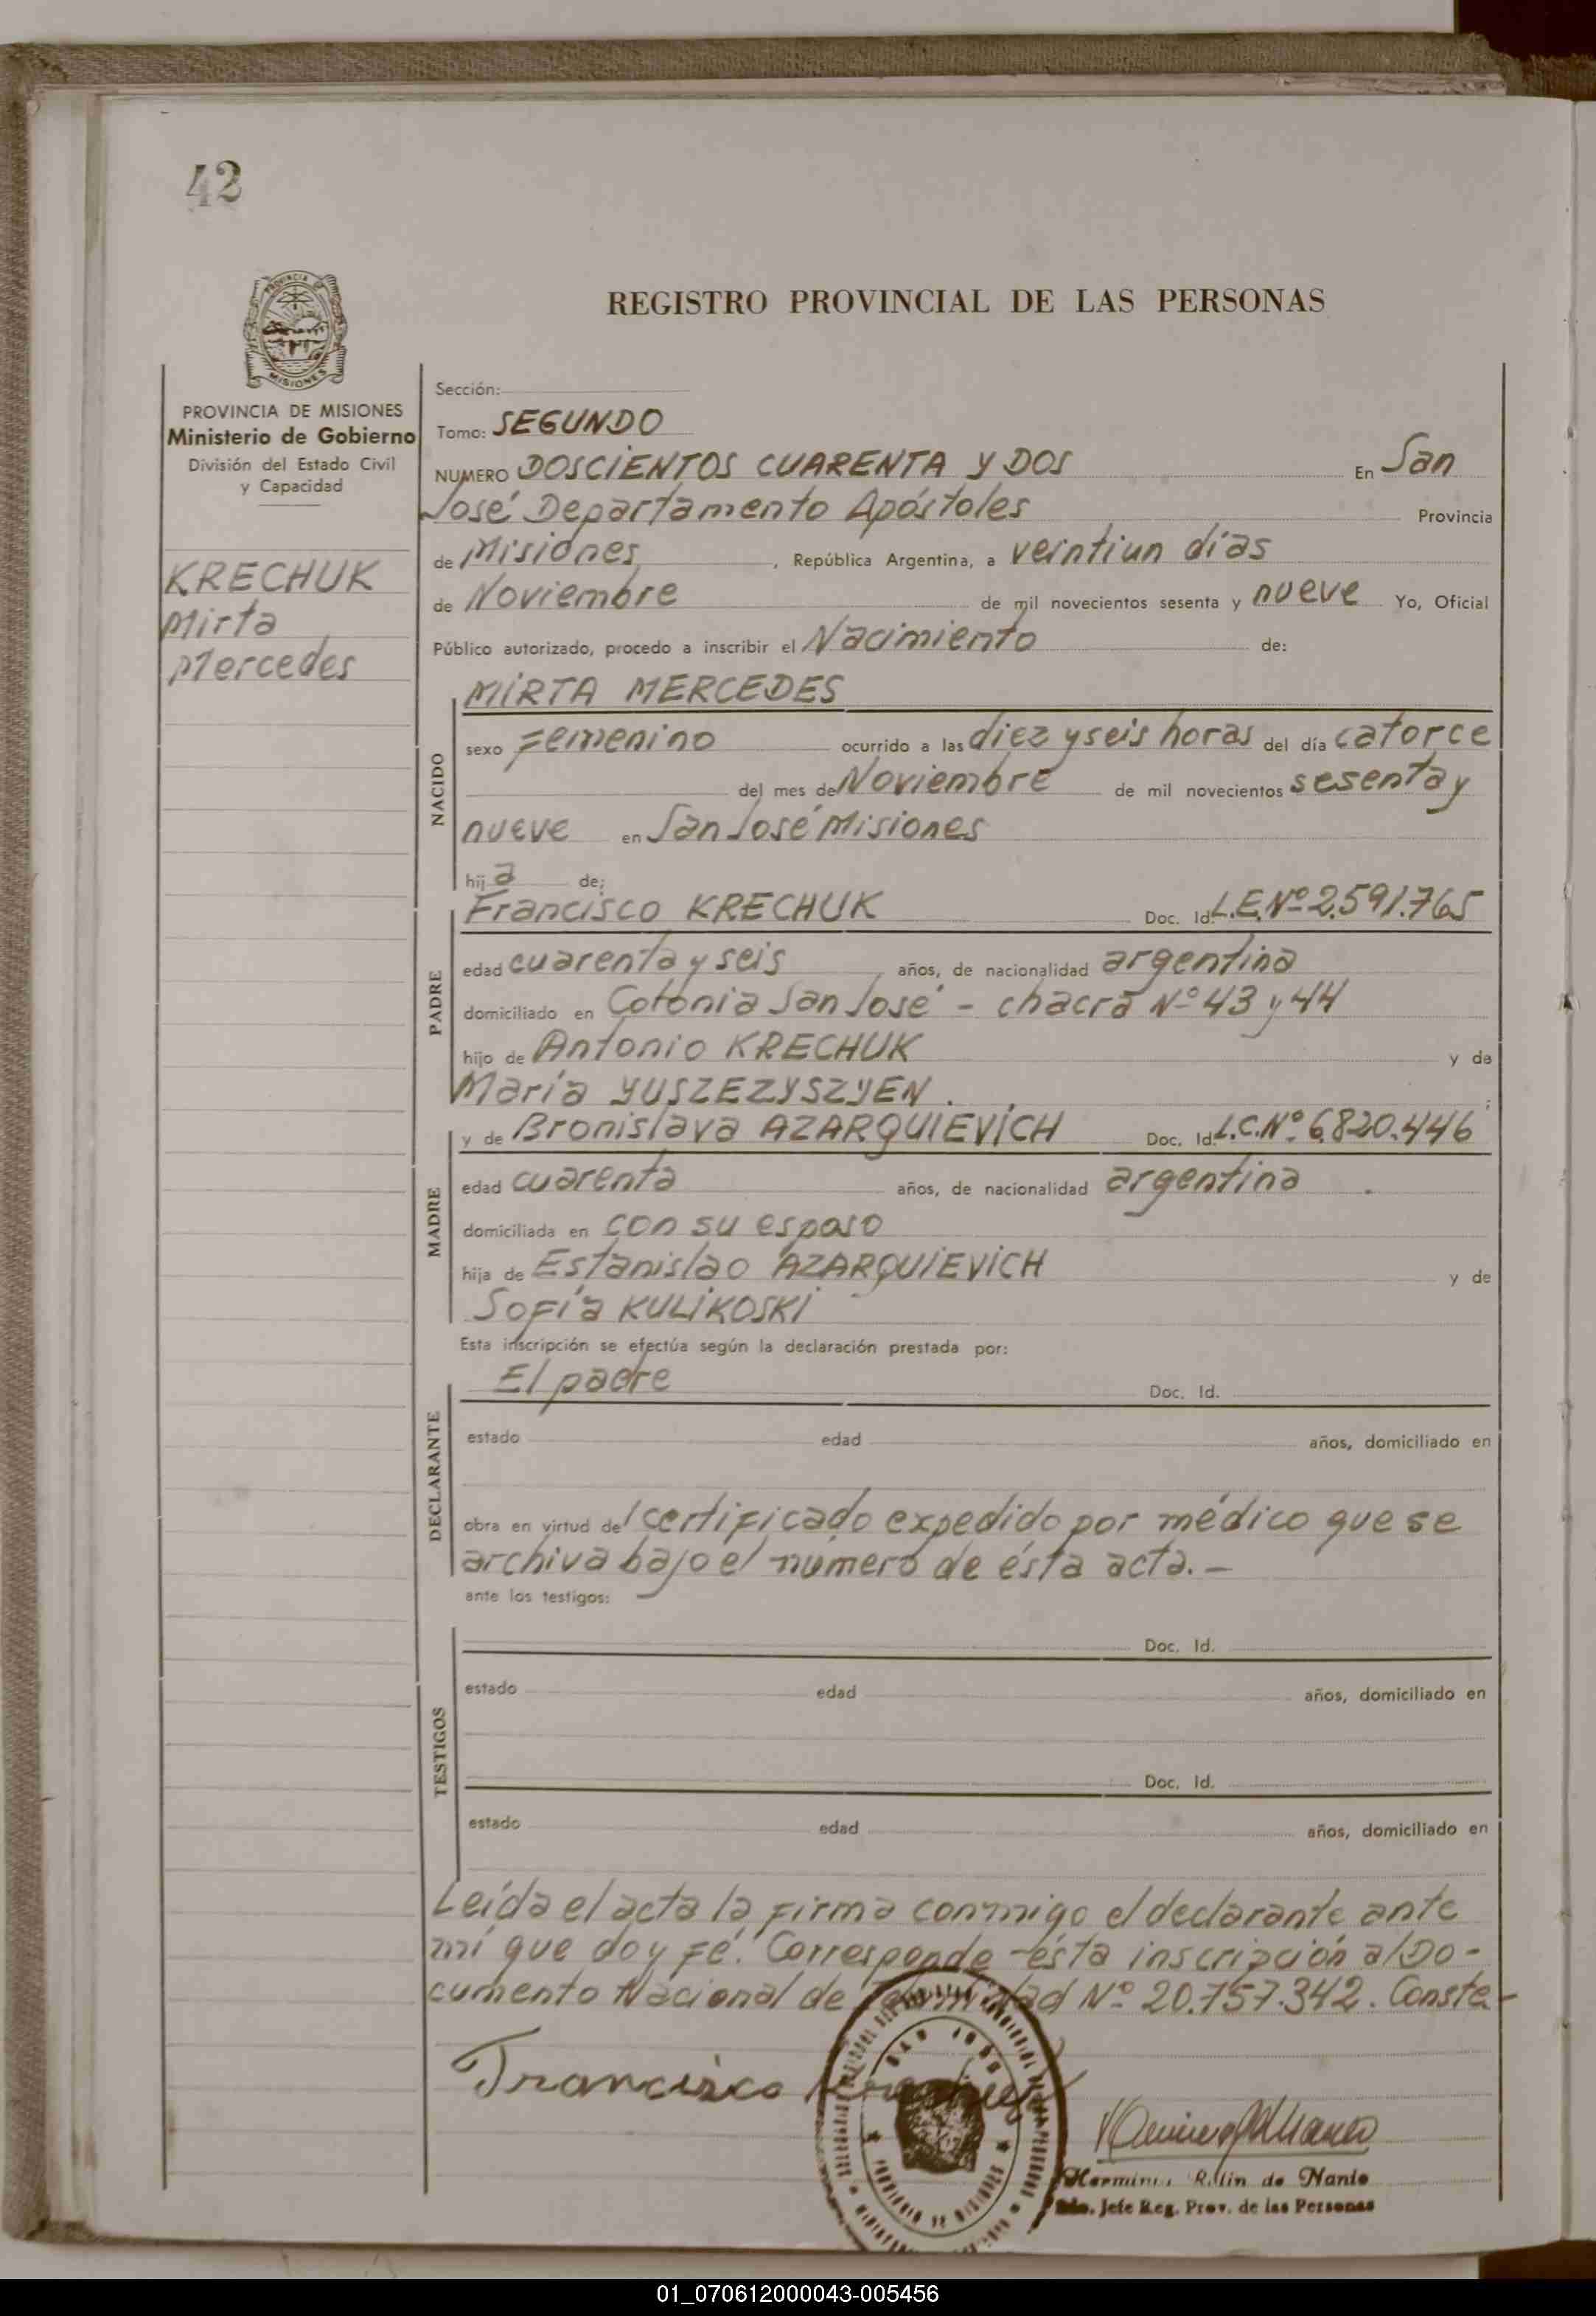 42
REGISTRO PROVINCIAL DE LAS PERSONAS
PROVINCIA
MISIONES
PROVINCIA DE MISIONES
Ministerio de Gobierno
División del Estado Civil
y Capacidad
KRECHUK
Mirta
Mercedes
Sección:
Tomo: SEGUNDO
NUMERO DOSCIENTOS CUARENTA Y DOS En San
José Departamento Apóstoles Provincia
de Misiones, República Argentina, a veintiun días
de Noviembre de mil novecientos sesenta y nueve Yo, Oficial
Público autorizado, procedo a inscribir el Nacimiento de:
NACIDO
MIRTA MERCEDES
sexo Femenino ocurrido a las diez y seis horas del día catorce
del mes de Noviembre de mil novecientos sesenta y
nueve en San José Misiones
hija de:
PADRE
Francisco KRECHUK Doc. Id. L.E.Nº 2.591.765
edad cuarenta y seis años, de nacionalidad argentina
domiciliado en Colonia San José - chacra Nº 43 y 44
hijo de Antonio KRECHUK y de
María YUSZEZYSZYEN.
MADRE
y de Bronislava AZARQUIEVICH Doc. Id. L.C.Nº 6.820.446
edad cuarenta años, de nacionalidad argentina.
domiciliada en con su esposo
hija de Estanislao AZARQUIEVICH y de
Sofía KULIKOSKI
Esta inscripción se efectúa según la declaración prestada por:
DECLARANTE
El padre Doc. Id.
estado edad años, domiciliado en
obra en virtud del certificado expedido por médico que se
archiva bajo el número de ésta acta.-
ante los testigos:
TESTIGOS
Doc. Id.
estado edad años, domiciliado en
Doc. Id.
estado edad años, domiciliado en
Leída el acta la firma conmigo el declarante ante
mí que doy fé. Corresponde ésta inscripción al Do-
cumento Nacional de Identidad Nº 20.757.342. Conste-
Francisco Krechuk
SAN JOSE
de Nanio
Jefe Reg. Prov. de las Personas
01_070612000043-005456